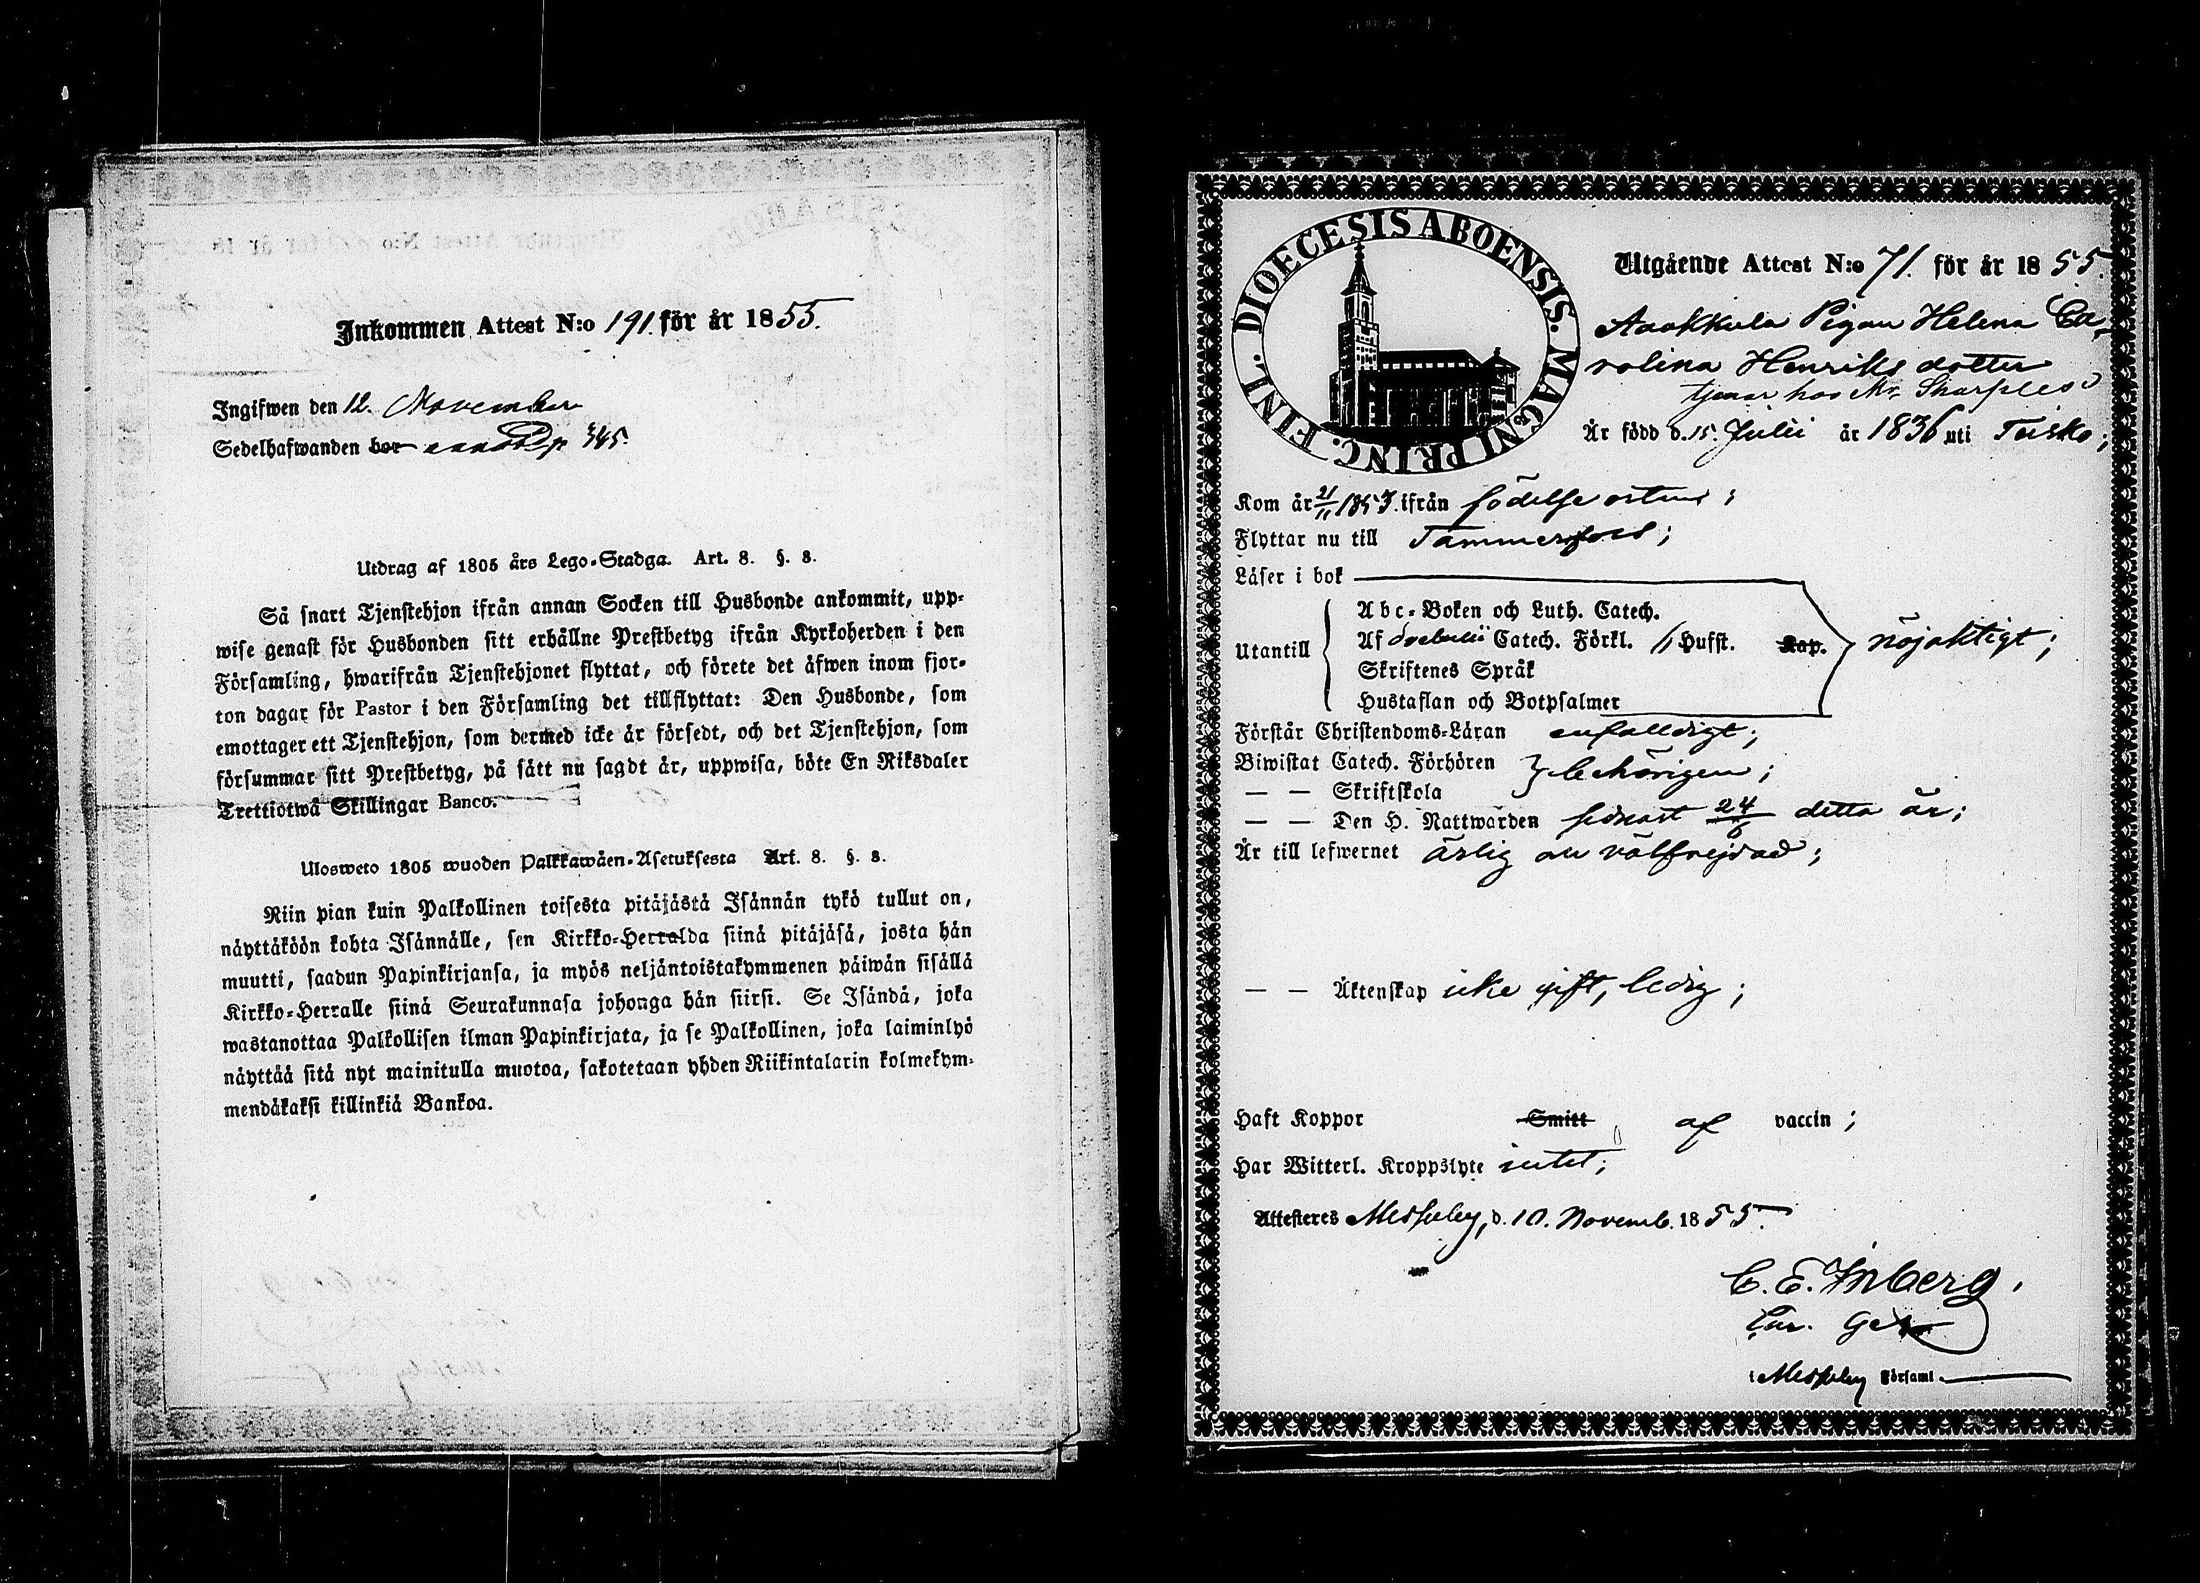 Inkommen Attest N:o 191. för år 1855.
Ingifwen den 12. November
Sedelhafwanden bor
Utdrag af 1805 års Lego-Stadga. Art. 8. §. 8.
Så snart Tjenstehjon ifrån annan Socken till Husbonde ankommit, upp-
wise genast för Husbonden sitt erhållne Prestbetyg ifrån Kyrkoherden i den
Församling, hwarifrån Tjenstehjonet flyttat, och förete det äfwen inom fjor-
ton dagar för Pastor i den Församling det tillflyttat: Den Husbonde, som
emottager ett Tjenstehjon, som dermed icke är försedt, och det Tjenstehjon, som
försummar sitt Prestbetyg, på sätt nu sagdt är, uppwisa, böte En Riksdaler
Trettiotwå Skillingar Banco.
Ulosweto 1805 wuoden Palkkawäen-Asetuksesta Art. 8. §. 8.
Niin pian kuin Palkollinen toisesta pitäjästä Isännän tykö tullut on,
näyttäköön kohta Isännälle, sen Kirkko-Herralda siinä pitäjäsä, josta hän
muutti, saadun Papinkirjansa, ja myös neljäntoistakymmenen päiwän sisällä
Kirkko-Herralle siinä Seurakunnasa johonga hän siirsi. Se Isändä, joka
wastanottaa Palkollisen ilman Papinkirjata, ja se Palkollinen, joka laiminlyö
näyttää sitä nyt mainitulla muotoa, sakotetaan yhden Riikintalarin kolmekym-
mendäkaksi killinkiä Bankoa.
DIOECESIS ABOENSIS. MAGNI PRINC. FINL.
Utgående Attest N:o 71. för år 1855.
Aaakkula Pigan Helena Ca-
rolina Henriksdotter
tjenar hos Mr Sharples
Är född d. 15. Julii år 1836 uti Teisko;
Kom år 21/11 1853. ifrån födelseorten;
Flyttar nu till Tammerfors;
Läser i bok
Utantill
Abc-Boken och Luth. Catech.
Af Svebelii Catech. Förkl. // Hufst. Kap.
Skriftenes Språk
Hustaflan och Botpsalmer
nöjaktigt;
Förstår Christendoms-Läran enfalldigt;
Biwistat Catech. Förhören
— — Skriftskola
behörigen;
— — Den H. Nattwarden sednast 24/6 detta år;
Är till lefwernet ärlig och välfrejdad;
— — Äktenskap icke gift, ledig;
Haft Koppor Smitt af vaccin;
Har Witterl. Kroppslyte intet;
Attesteres Messuby, d. 10. Novemb. 1855.
C. E. Inberg.
i Messuby Församl.